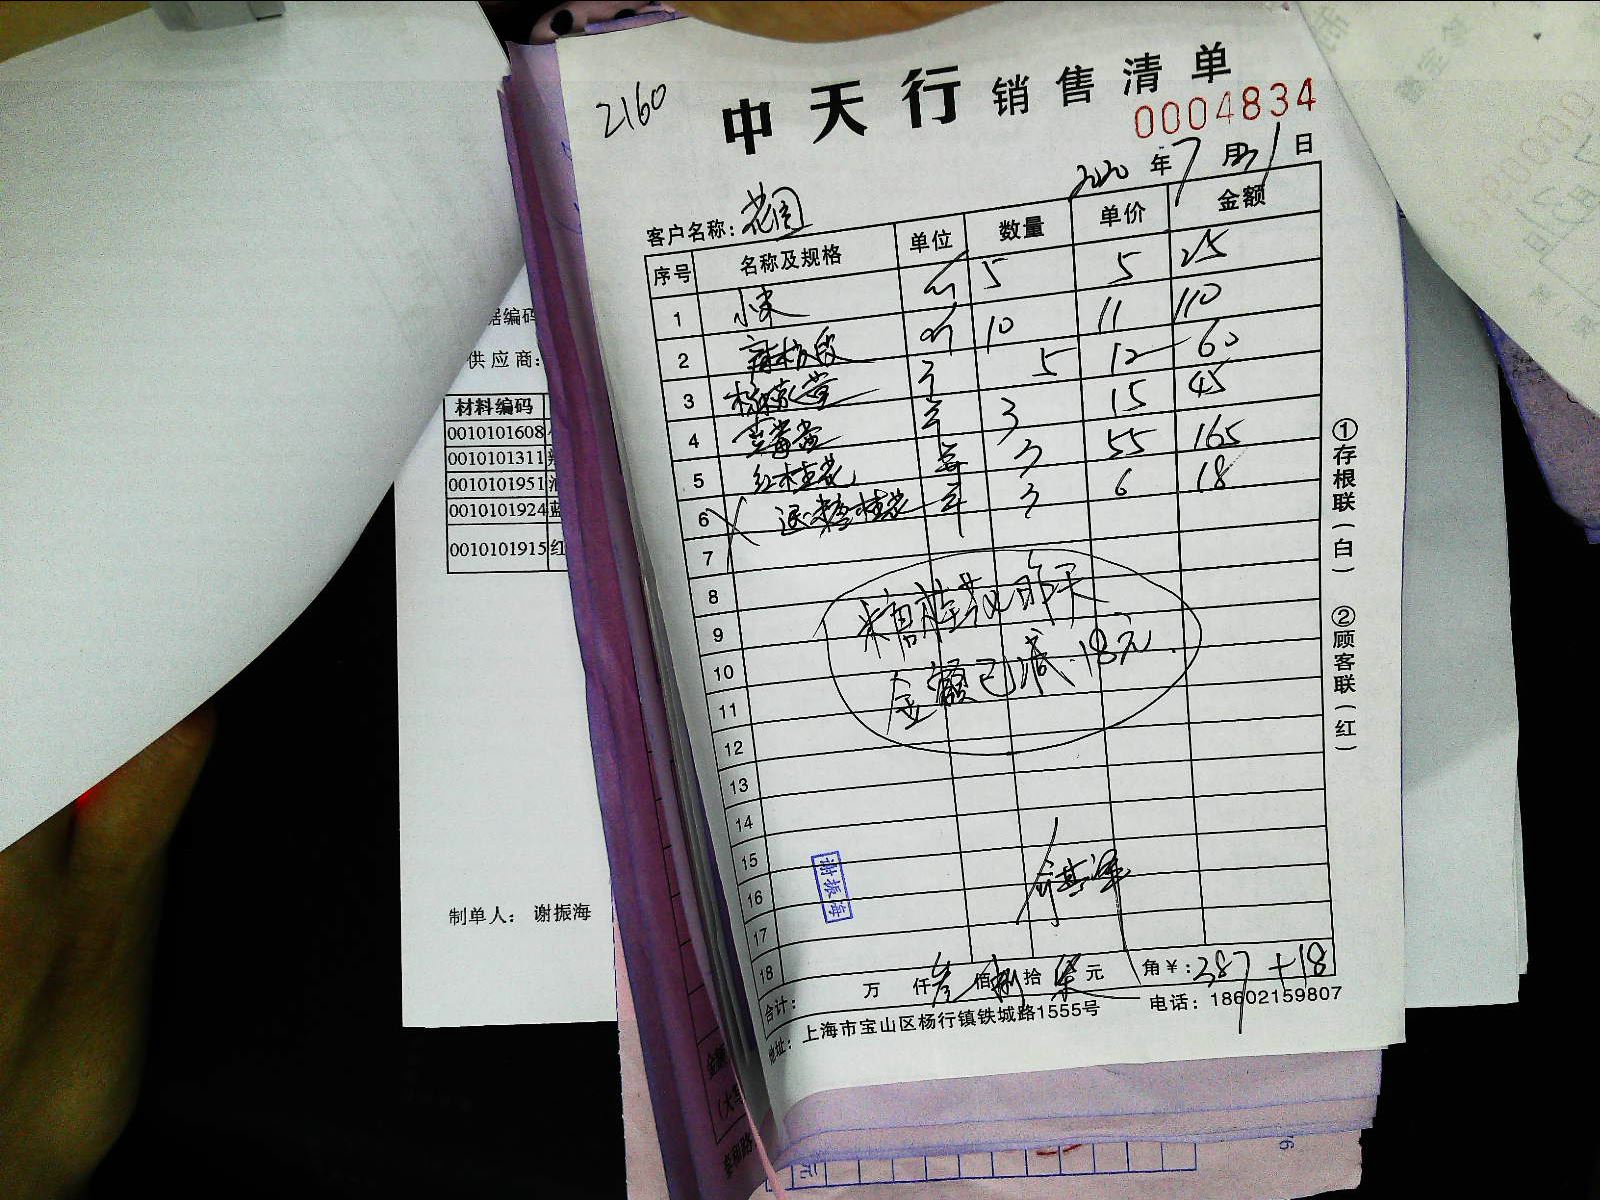 2160
中天行销售清单
0004834
2020年7月31日
客户名称：花园
序号 名称及规格 单位 数量 单价 金额
1 小米 斤 5 5 25
2 斤 10 11 110
3 个 5 12 60
4 3 15 45
5 红桂花 3 55 165
6 退糖桂花 3 6 18
7
8
9
10
11
12
13
14
15
16
17
18
糖桂花昨天
金额已减18元
谢振海
合计： 万 仟叁佰捌拾柒元 角￥：387+18
地址：上海市宝山区杨行镇铁城路1555号 电话：18602159807
①存根联（白） ②顾客联（红）
据编码
供应商：
材料编码
0010101608
0010101311
0010101951
0010101924 蓝
0010101915 红
制单人： 谢振海